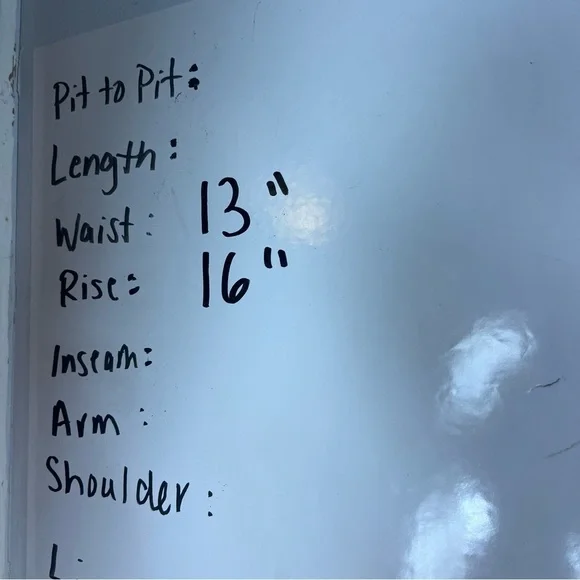 Pit to Pit:
Length:
Waist: 13"
Rise: 16"
Inseam:
Arm:
Shoulder: